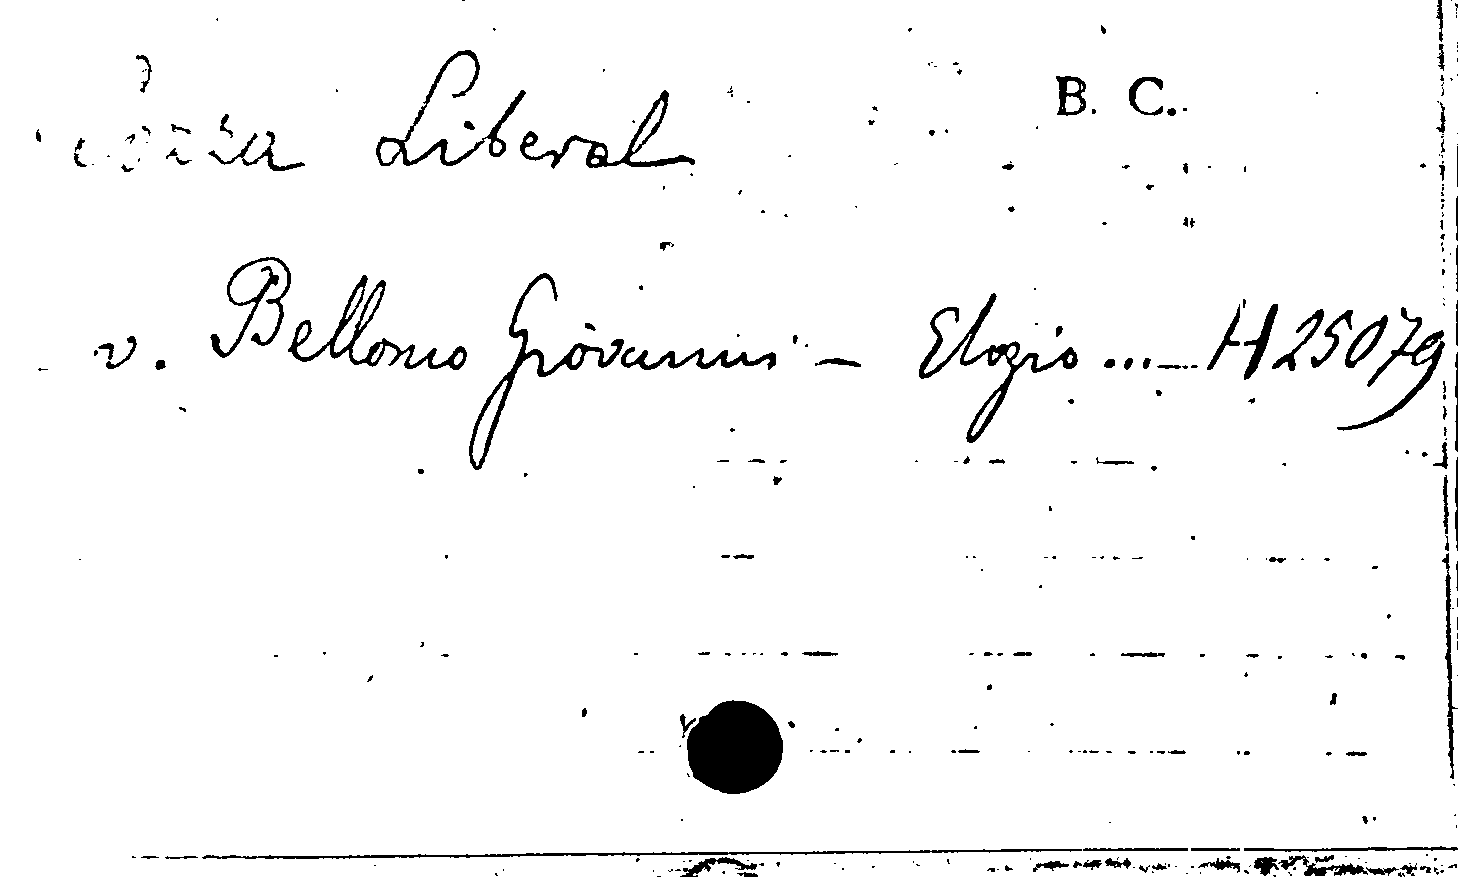 Liberal
B. C.
v. Bellomo Giovanni - Elogio ... H 25079